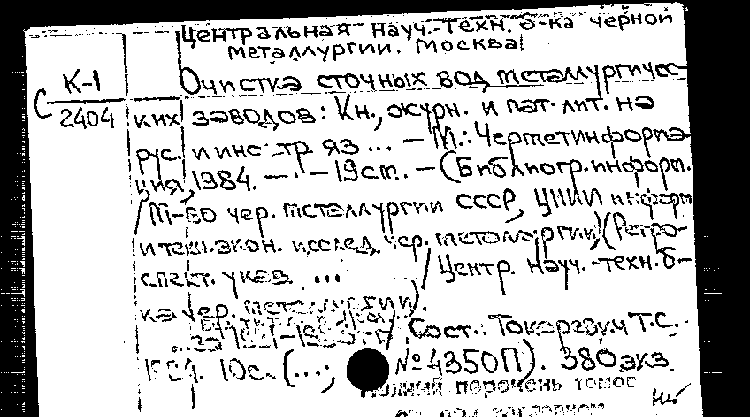 Центральная науч.-техн. б-ка черной
металлургии. Москва
К-1
Очистка сточных вод металлургичес-
С
2404
ких заводов: Кн., журн. и пат. лит. на
рус. и иностр яз ... — М.: Черметинформа-
ция, 1984. — · — 19см. — (Библиогр. информ.
/ М-во чер. металлургии СССР, ЦНИИ информ
и техн. экон. исслед. чер. металлургии) (Ретро-
спект. указ. ... / Центр. науч.-техн. б-
ка чер. металлургии)
Сост.: Токаревич Т.С.
10с. (...; №4350П). 380экз.
Полный перечень томов